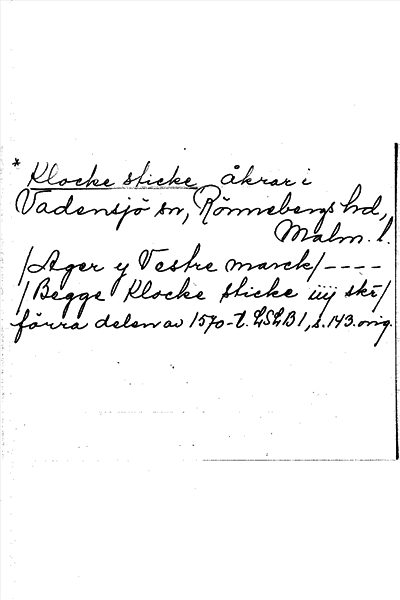 * Klocke sticke åkrar i
Vadensjö sn, Rönnebergs hd,
Malm. l.
/Ager y Vestre marck/ ----
/Begge Klocke sticke iiij skr/
förra delen av 1570-t. LSLB 1, s. 143. orig.